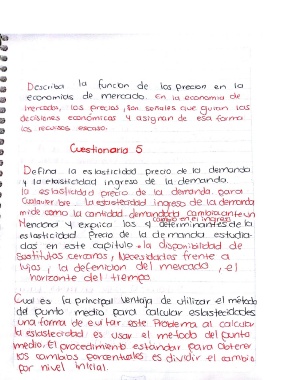 Describa la funcion de los precios en la
economias de mercado. En la economia de
mercados, los precios, son señales que guian las
decisiones económicas y asignan de esa forma
los recursos escaso.
Cuestionario 5
Defina la eslasticidad precio de la demanda
y la elasticidad ingreso de la demanda.
la eslasticidad precio de la demanda para
Cualquier bre la elasteicidad ingreso de la demanda
mide como la cantidad demandada cambia ante un
cambio en el ingreso
Menciona y explica los 4 determinantes de la
eslasticidad Precio de la demanda estudia-
das en este capitulo. la disponibilidad de
Sustitutos cercanos, Necesidades frente a
lujos, la defenicion del mercado, el
horizonte del tiempo
Cual es la principal ventaja de utilizar el método
del punto medio para calcular eslastecidades
una forma de evitar este Problema al calcular
la eslastecidad es usar el método del punto
medio. El procedimiento estandar para obtener
los cambios porcentuales es dividir el cambio
por nivel inicial.